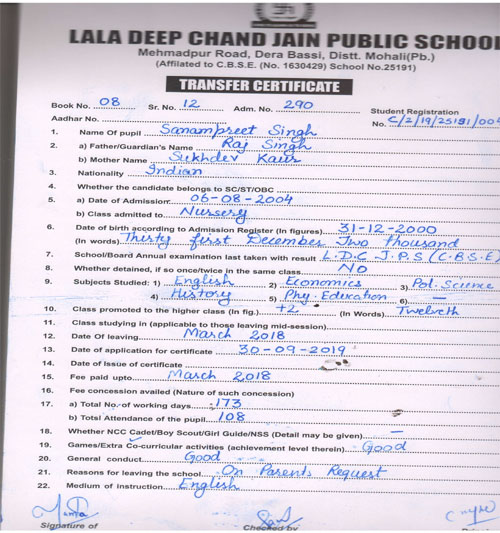 LALA DEEP CHAND JAIN PUBLIC SCHOOL
Mehmadpur Road, Dera Bassi, Distt. Mohali(Pb.)
(Affilated to C.B.S.E. (No. 1630429) School No.25191)
TRANSFER CERTIFICATE
Book No. 08 Sr. No. 12 Adm. No. 290 Student Registration
Aadhar No. No. S/2/19/25191/004
1. Name Of pupil Sanampreet Singh
2. a) Father/Guardian's Name Raj Singh
b) Mother Name Sukhdev Kaur
3. Nationality Indian
4. Whether the candidate belongs to SC/ST/OBC
5. a) Date of Admission 06-08-2004
b) Class admitted to Nursery
6. Date of birth according to Admission Register (In figures) 31-12-2000
(In words) Thirty first December Two thousand
7. School/Board Annual examination last taken with result L.D.C J.P.S (C.B.S.E)
8. Whether detained, if so once/twice in the same class NO
9. Subjects Studied: 1) English 2) Economics 3) Pol. Science
4) History 5) Phy. Education 6) —
10. Class promoted to the higher class (In fig.) +2 (In Words) Twelveth
11. Class studying in (applicable to those leaving mid-session)
12. Date Of leaving March 2018
13. Date of application for certificate 30-09-2019
14. Date of Issue of certificate
15. Fee paid upto March 2018
16. Fee concession availed (Nature of such concession)
17. a) Total No. of working days 173
b) Total Attendance of the pupil 108
18. Whether NCC Cadet/Boy Scout/Girl Guide/NSS (Detail may be given) —
19. Games/Extra Co-curricular activities (achievement level therein) Good
20. General conduct Good
21. Reasons for leaving the school On Parents Request
22. Medium of instruction English
Signature of Checked by